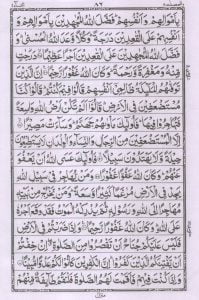 ٨٦
بِاَمْوَالِهِمْ وَاَنْفُسِهِمْ فَضَّلَ اللّٰهُ الْمُجٰهِدِيْنَ بِاَمْوَالِهِمْ وَ
اَنْفُسِهِمْ عَلَى الْقٰعِدِيْنَ دَرَجَةً وَكُلًّا وَّعَدَ اللّٰهُ الْحُسْنٰى وَ
فَضَّلَ اللّٰهُ الْمُجٰهِدِيْنَ عَلَى الْقٰعِدِيْنَ اَجْرًا عَظِيْمًا دَرَجٰتٍ
مِّنْهُ وَمَغْفِرَةً وَّرَحْمَةً وَكَانَ اللّٰهُ غَفُوْرًا رَّحِيْمًا اِنَّ الَّذِيْنَ
تَوَفّٰىهُمُ الْمَلٰٓئِكَةُ ظَالِمِيْٓ اَنْفُسِهِمْ قَالُوْا فِيْمَ كُنْتُمْ قَالُوْا كُنَّا
مُسْتَضْعَفِيْنَ فِي الْاَرْضِ قَالُوْٓا اَلَمْ تَكُنْ اَرْضُ اللّٰهِ وَاسِعَةً
فَتُهَاجِرُوْا فِيْهَا فَاُولٰٓئِكَ مَاْوٰىهُمْ جَهَنَّمُ وَسَآءَتْ مَصِيْرًا
اِلَّا الْمُسْتَضْعَفِيْنَ مِنَ الرِّجَالِ وَالنِّسَآءِ وَالْوِلْدَانِ لَا يَسْتَطِيْعُوْنَ
حِيْلَةً وَّلَا يَهْتَدُوْنَ سَبِيْلًا فَاُولٰٓئِكَ عَسَى اللّٰهُ اَنْ يَّعْفُوَ
عَنْهُمْ وَكَانَ اللّٰهُ عَفُوًّا غَفُوْرًا وَمَنْ يُّهَاجِرْ فِيْ سَبِيْلِ اللّٰهِ
يَجِدْ فِي الْاَرْضِ مُرٰغَمًا كَثِيْرًا وَّسَعَةً وَمَنْ يَّخْرُجْ مِنْۢ بَيْتِهٖ
مُهَاجِرًا اِلَى اللّٰهِ وَرَسُوْلِهٖ ثُمَّ يُدْرِكْهُ الْمَوْتُ فَقَدْ وَقَعَ اَجْرُهٗ
عَلَى اللّٰهِ وَكَانَ اللّٰهُ غَفُوْرًا رَّحِيْمًا وَاِذَا ضَرَبْتُمْ فِي الْاَرْضِ
فَلَيْسَ عَلَيْكُمْ جُنَاحٌ اَنْ تَقْصُرُوْا مِنَ الصَّلٰوةِ اِنْ خِفْتُمْ
اَنْ يَّفْتِنَكُمُ الَّذِيْنَ كَفَرُوْا اِنَّ الْكٰفِرِيْنَ كَانُوْا لَكُمْ عَدُوًّا مُّبِيْنًا
وَاِذَا كُنْتَ فِيْهِمْ فَاَقَمْتَ لَهُمُ الصَّلٰوةَ فَلْتَقُمْ طَآئِفَةٌ مِّنْهُمْ